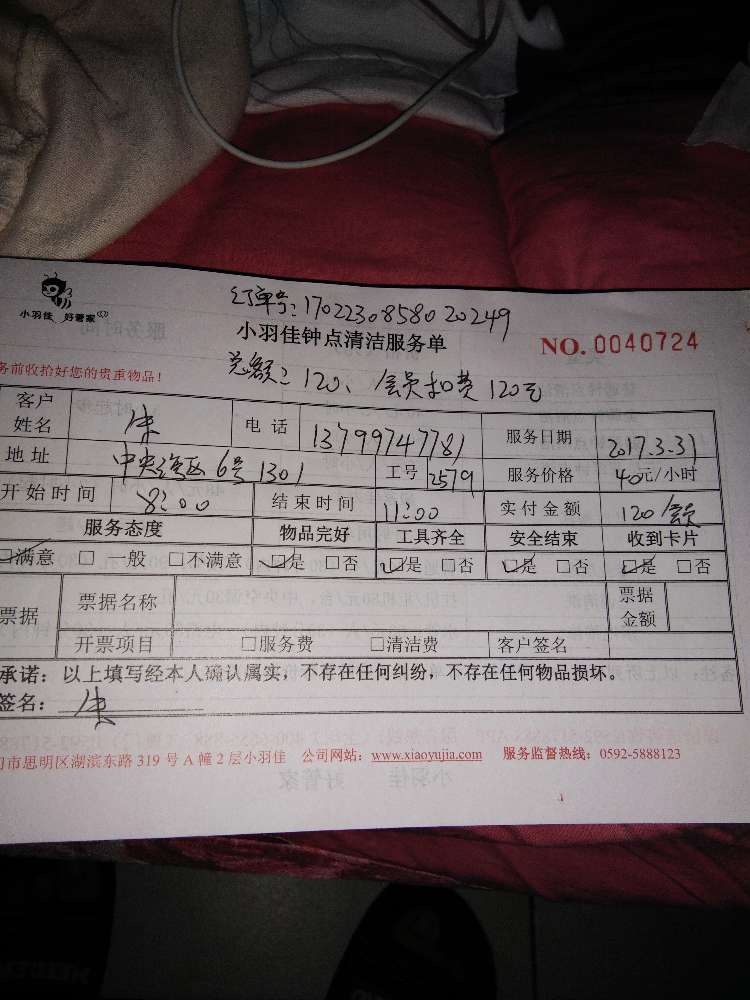 订单号:170223085802 0249
小羽佳 好管家
小羽佳钟点清洁服务单
NO. 0040724
务前收拾好您的贵重物品!
总额:120、会员扣费120元
客户姓名 朱 电话 13799747781 服务日期 2017.3.31
地址 中央湾区6号1301 工号 2579 服务价格 40元/小时
开始时间 8:00 结束时间 11:00 实付金额 120/会员
服务态度 物品完好 工具齐全 安全结束 收到卡片
满意 □ 一般 □不满意 □是 □否 □是 □否 □是 □否 □是 □否
票据 票据名称 票据金额
开票项目 □服务费 □清洁费 客户签名
承诺:以上填写经本人确认属实,不存在任何纠纷,不存在任何物品损坏。
签名:朱
门市思明区湖滨东路 319 号 A 幢 2 层小羽佳 公司网站:www.xiaoyujia.com 服务监督热线:0592-5888123